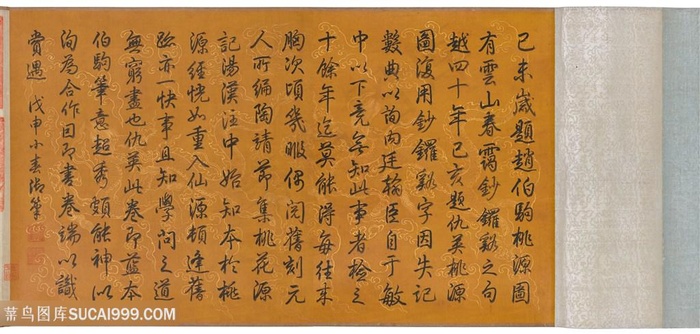 己未歲題趙伯駒桃源圖
有雲山春靄鈔鑼谿之句
越四十年己亥題仇英桃源
圖復用鈔鑼谿字因失記
數典以詢內廷翰臣自于敏
中以下竟無知此事者檢之
十餘年迄莫能得每往來
胸次頃幾暇偶閱舊刻元
人所編陶靖節集桃花源
記湯漢注中始知本於桃
源經恍如重入仙源頓逢舊
跡亦一快事且知學問之道
無窮盡也仇英此卷即藍本
伯駒筆意超秀頗能神似
洵為合作因即書卷端以識
賞遇 戊申小春御筆
菜鸟图库SUCAI999.COM